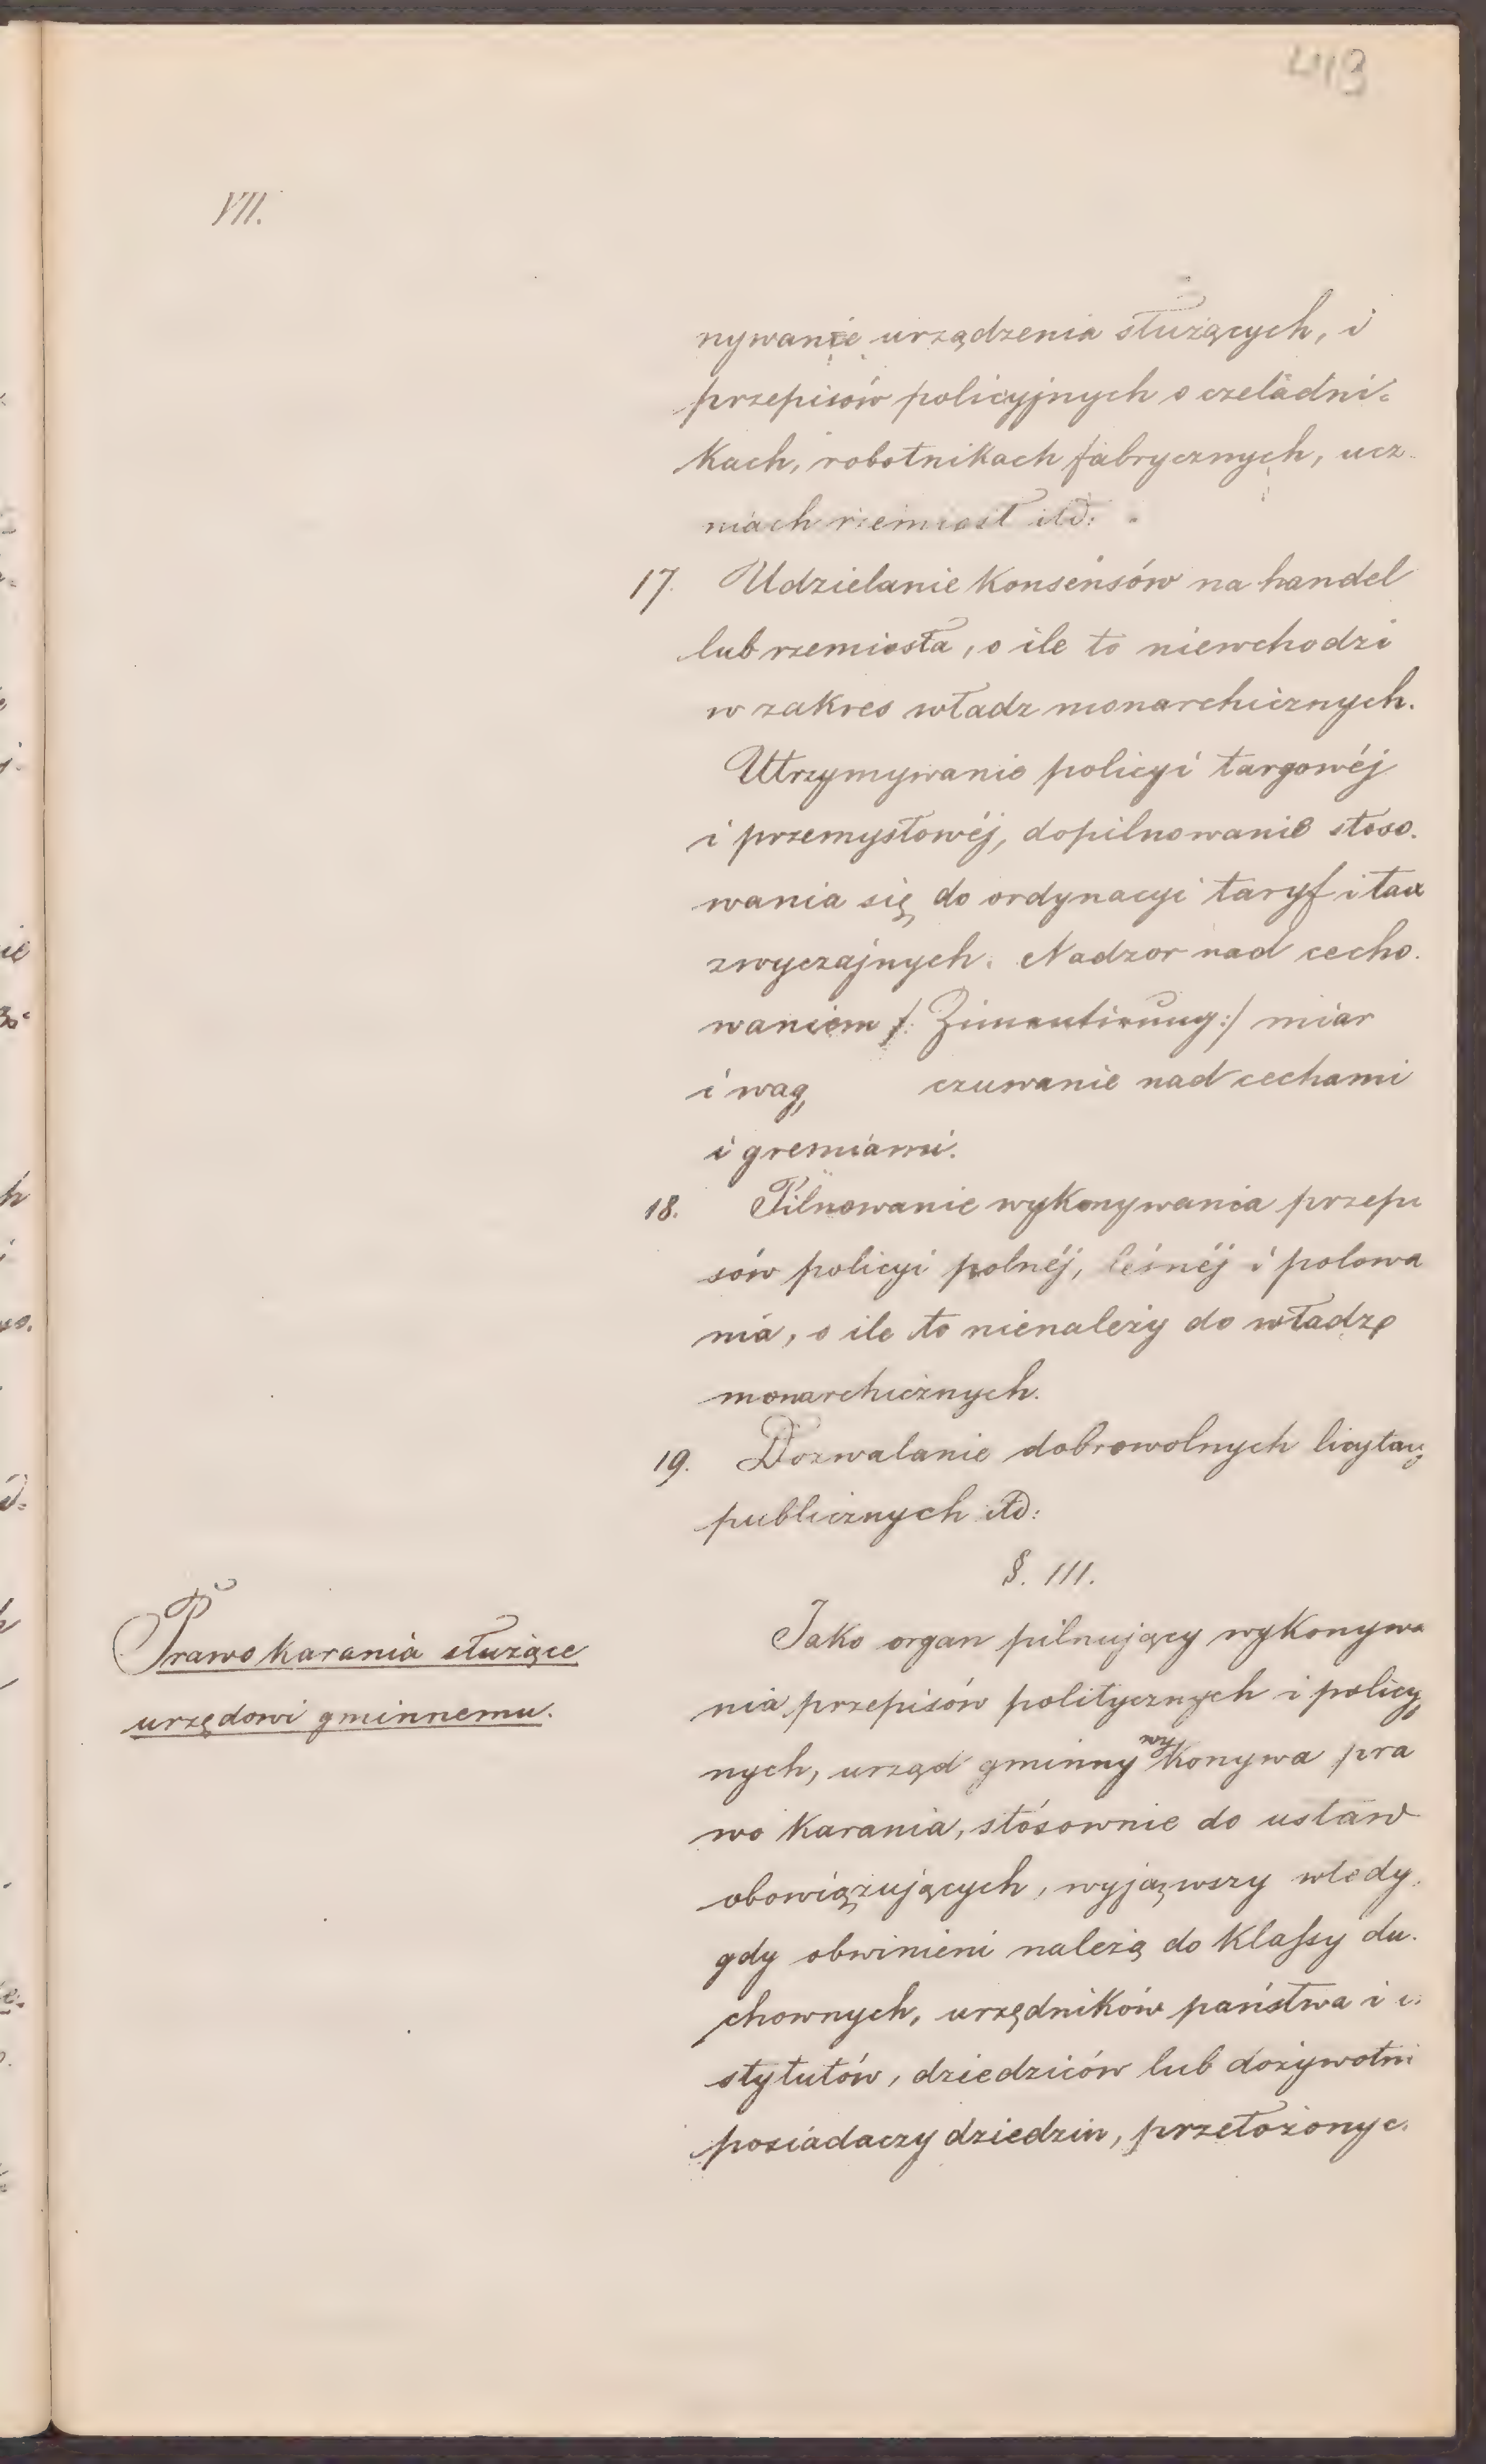 449
VII.
nywanie urządzenia służących, i
przepisów policyjnych o czeladni-
kach, robotnikach fabrycznych, ucz-
niach rzemiosł itd:
17. Udzielanie konsensów na handel
lub rzemiosła, o ile to niewchodzi
w zakres władz monarchicznych.
Utrzymywanie policyi targowéj
i przemysłowéj, dopilnowanie stoso-
wania się do ordynacyi taryf i tax
zwyczajnych. Nadzor nad cecho-
waniem /: Zimentirung :/ miar
i wag, czuwanie nad cechami
i gremiami.
18. Pilnowanie wykonywania przepi
sów policyi polnéj, leśnéj i polowa
nia, o ile to nienależy do władz
monarchicznych.
19. Dozwalanie dobrowolnych licytacy
publicznych itd:
§. 111.
Prawo karania służące
urzędowi gminnemu.
Jako organ pilnujący wykonywa
nia przepisów politycznych i policyj
nych, urząd gminny wykonywa pra
wo karania, stósownie do ustaw
obowiązujących, wyjąwszy wtedy,
gdy obwinieni należą do klassy du-
chownych, urzędników państwa i i
stytutów, dziedziców lub dożywotni
posiadaczy dziedzin, przełożonyc